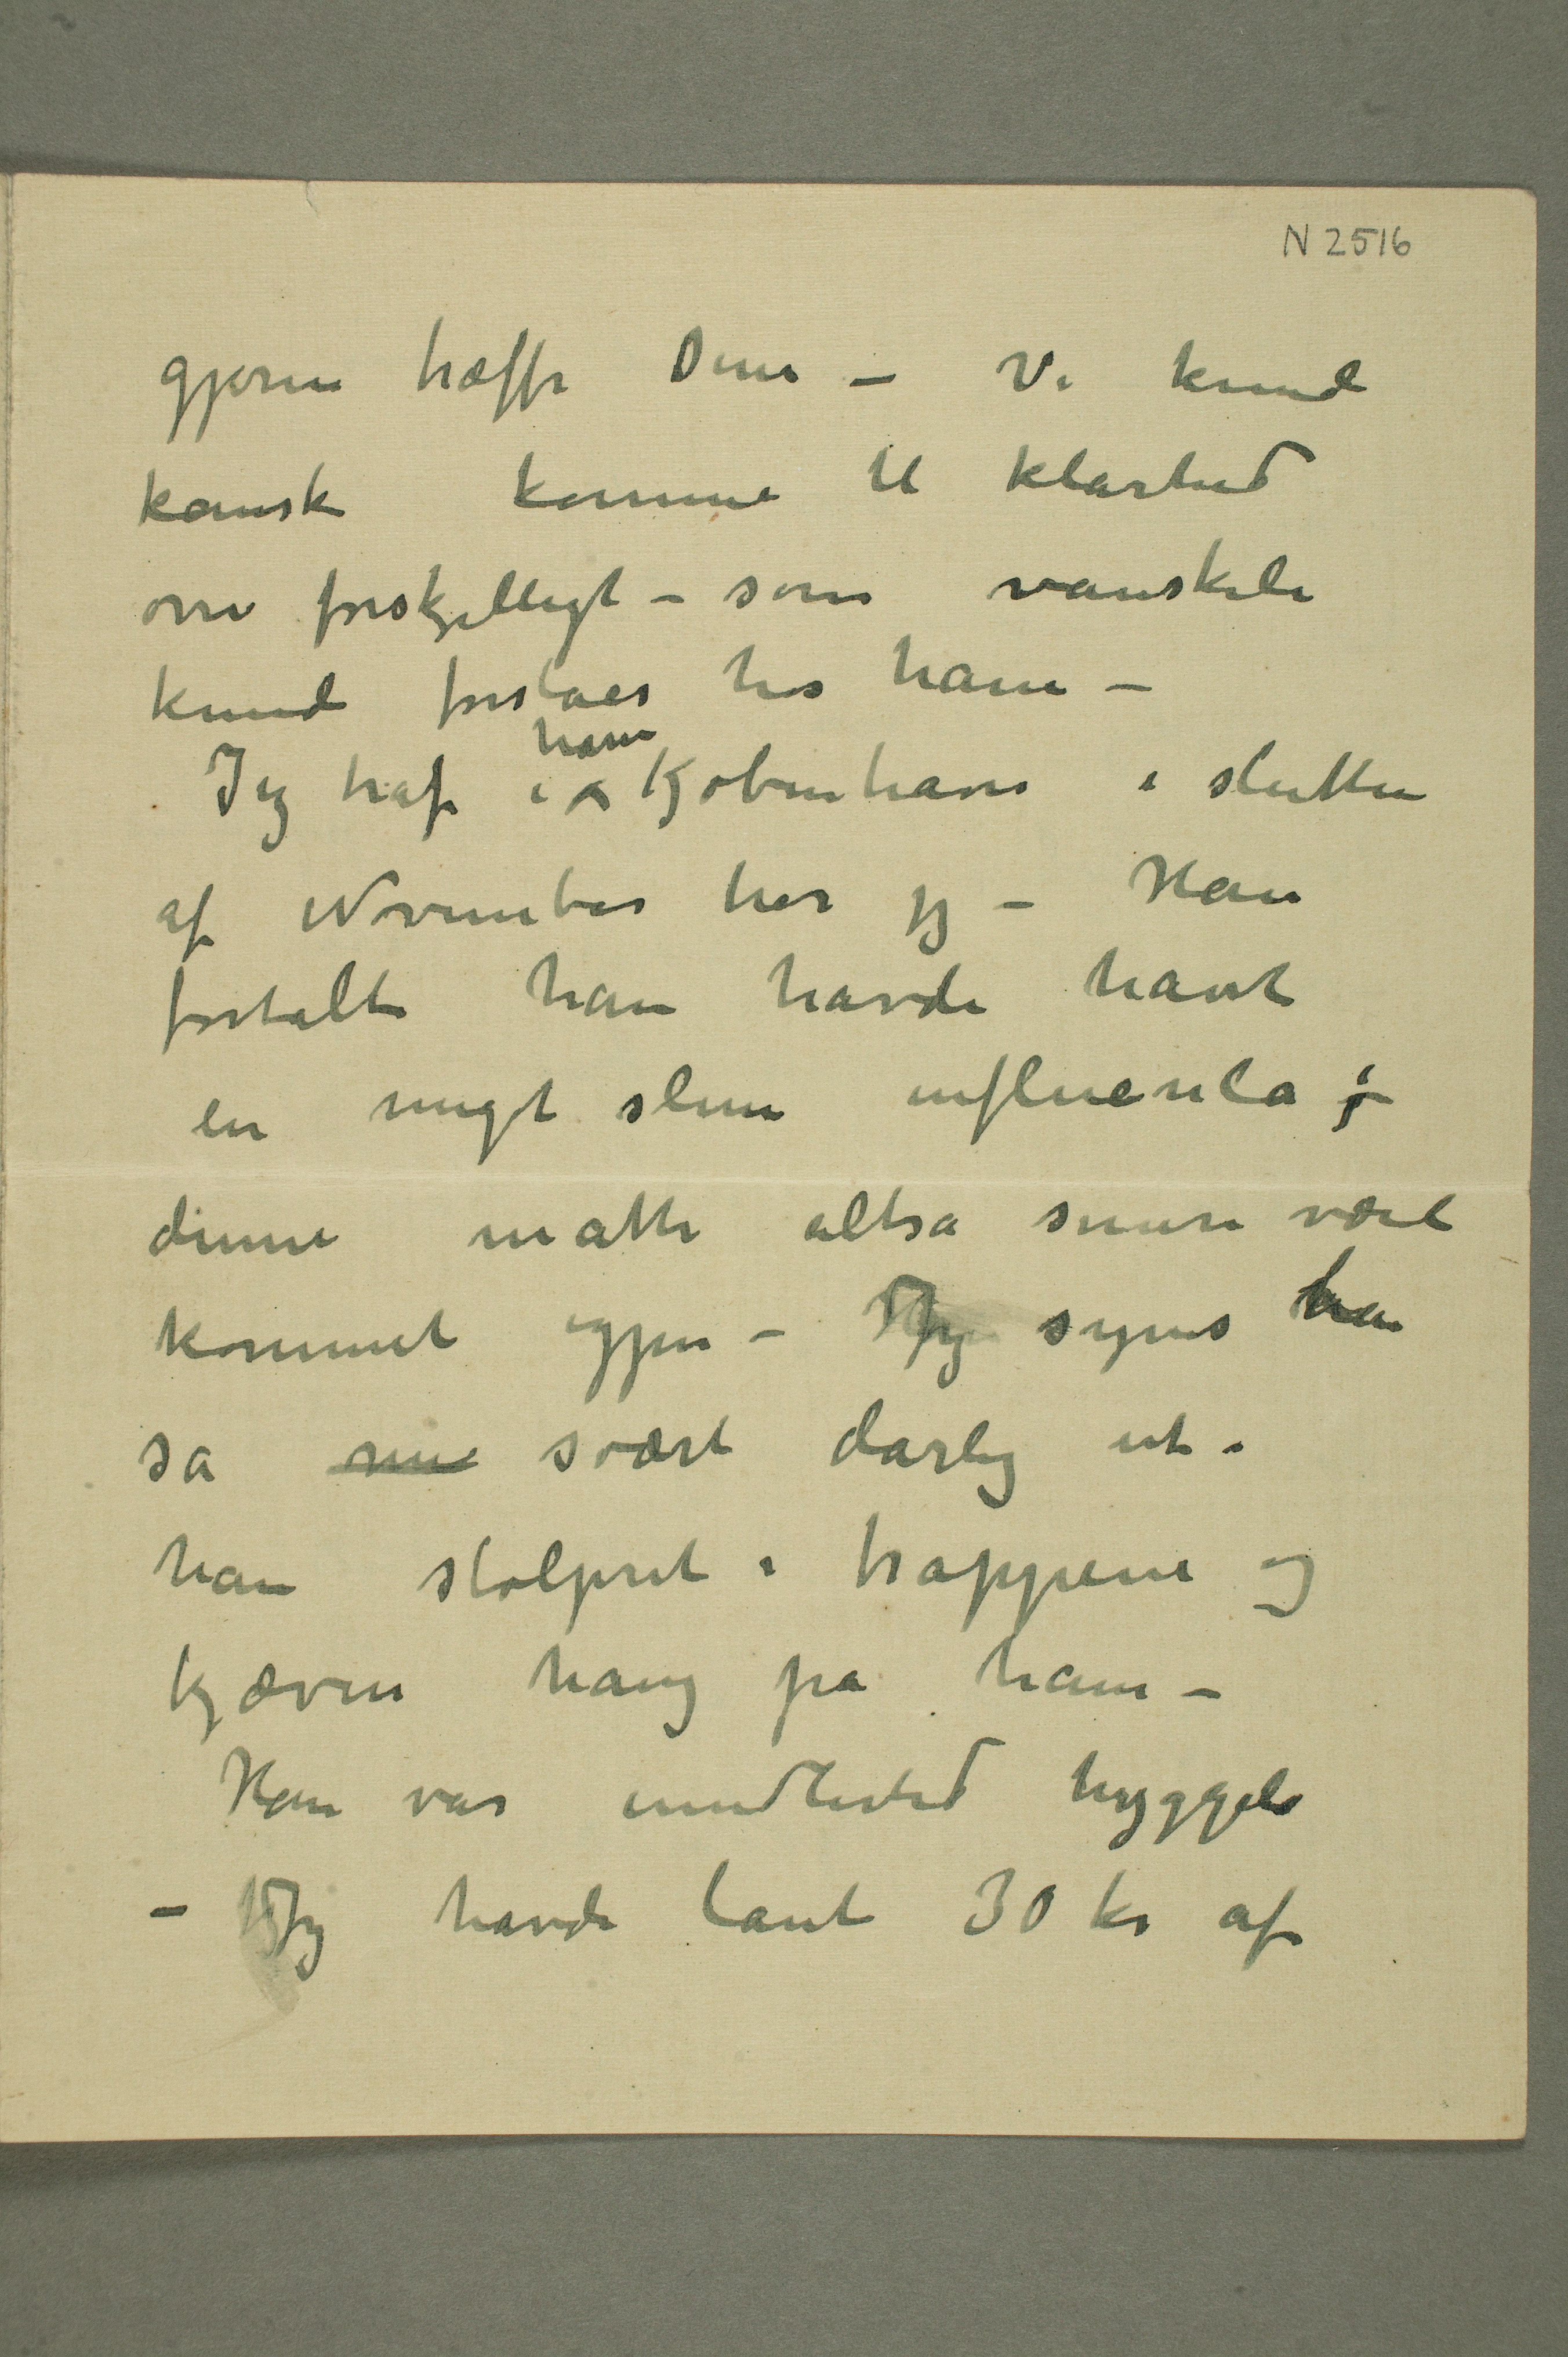 N 2516
gjerne træffe Dem – Vi kunde
kanske komme til klarhed
over forskjelligt – som vanskeli
kunde forståes hos ham –
ham
Jeg traf i Kjøbenhavn i slutten
af November tror jeg – Han
fortalte han havde havt
en meget slem influenza ;
denne måtte altså senere være
kommet igjen – Jeg synes han
så svært dårlig ut.
han stolpret i trappene og
kjæven hang på ham –
Han var imidlertid hyggeli
– Jeg havde lånt 30 kr af